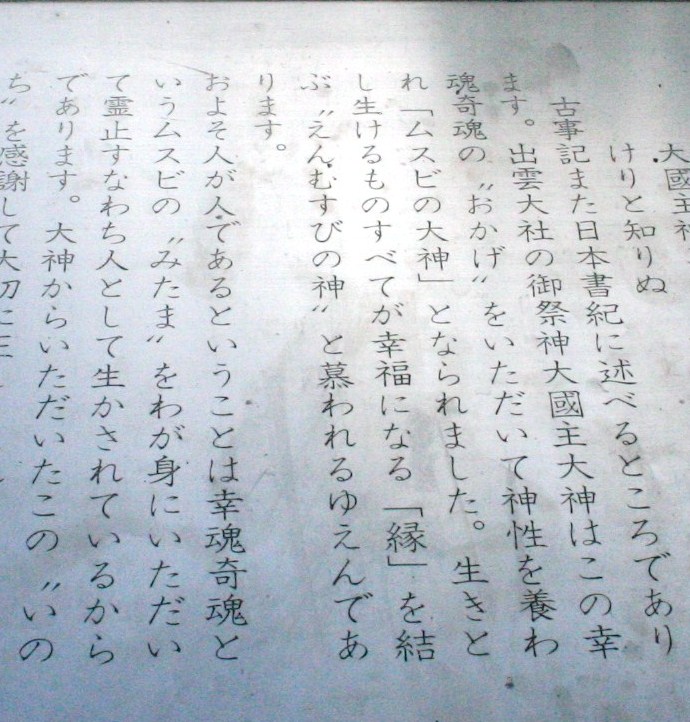 大國主神
けりと知りぬ
古事記また日本書紀に述べるところであり
ます。出雲大社の御祭神大國主大神はこの幸
魂奇魂の〝おかげ〟をいただいて神性を養わ
れ「ムスビの大神」となられました。生きと
し生けるものすべてが幸福になる「縁」を結
ぶ〝えんむすびの神〟と慕われるゆえんであ
ります。
およそ人が人であるということは幸魂奇魂と
いうムスビの〝みたま〟をわが身にいただい
て霊止すなわち人として生かされているから
であります。大神からいただいたこの〝いの
ち〟を感謝して大切に